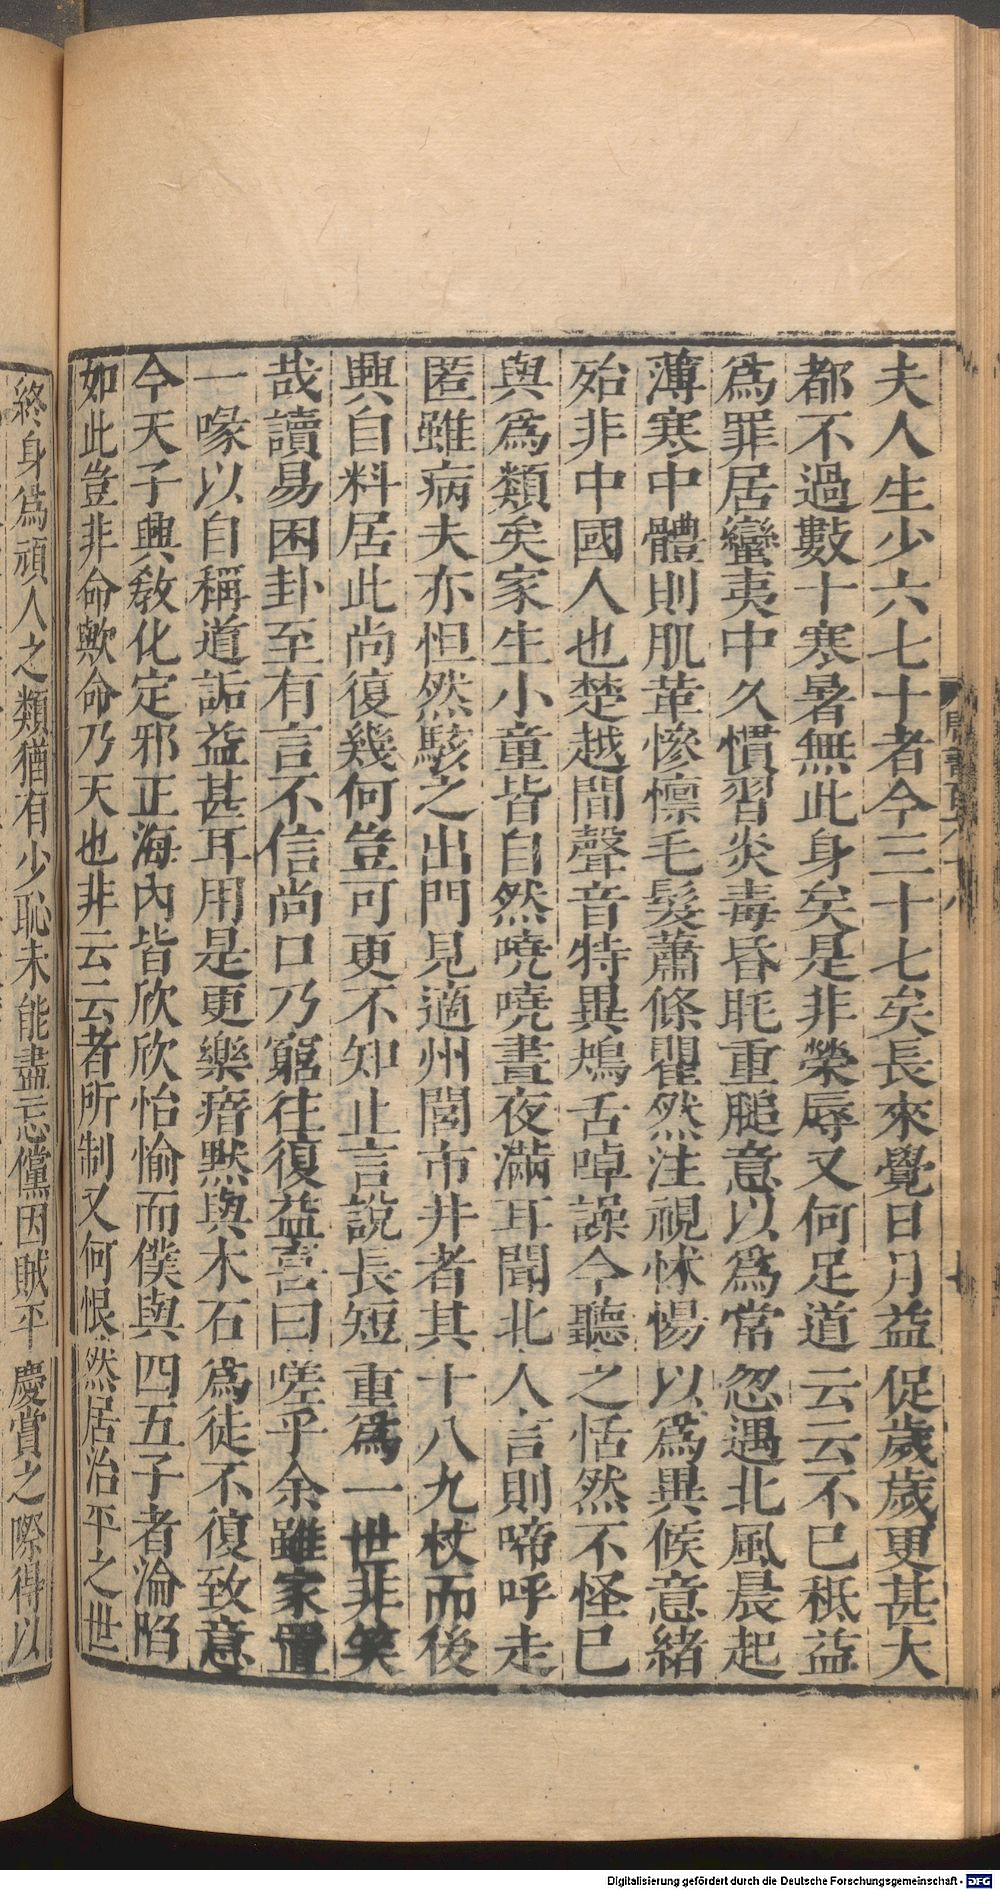 夫人生少六七十者今三十七矣長來覺日月益促歲歲更甚大
都不過數十寒暑無此身矣是非榮辱又何足道云云不已秪益
爲罪居蠻夷中久慣習炎毒昏眊重膇意以爲常忽遇北風晨起
薄寒中體則肌革慘懍毛髮蕭條瞿然注視怵惕以爲異候意緒
殆非中國人也楚越間聲音特異鴂舌啅譟今聽之恬然不怪已
與爲類矣家生小童皆自然嘵嘵晝夜滿耳聞北人言則啼呼走
匿雖病夫亦怛然駭之出門見適州閭市井者其十八九杖而後
興自料居此尚復幾何豈可更不知止言說長短重爲一世非笑
哉讀易困卦至有言不信尚口乃窮往復益喜曰嗟乎余雖家置
一喙以自稱道詬益甚耳用是更樂瘖默與木石爲徒不復致意
今天子興敎化定邪正海內皆欣欣怡愉而僕與四五子者淪陷
如此豈非命歟命乃天也非云云者所制又何恨然居治平之世
終身爲頑人之類猶有少恥未能盡忘儻因賊平慶賞之際得以
Digitalisierung gefördert durch die Deutsche Forschungsgemeinschaft - DFG